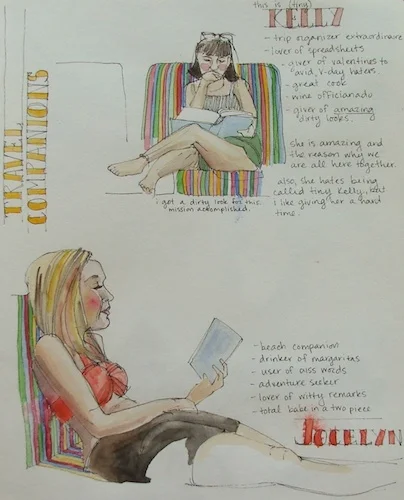 TRAVEL
COMPANIONS
this is (tiny)
KELLY
- trip organizer extraordinaire
- lover of spreadsheets
- giver of valentines to
avid v-day haters.
- great cook
- wine officianado
- giver of amazing
dirty looks.
She is amazing and
the reason why we
are all here together.
also, she hates being
called tiny Kelly, but
I like giving her a hard
time.
i got a dirty look for this.
mission accomplished.
- beach companion
- drinker of margaritas
- user of cuss words
- adventure seeker
- lover of witty remarks
- total babe in a two piece
JOCELYN